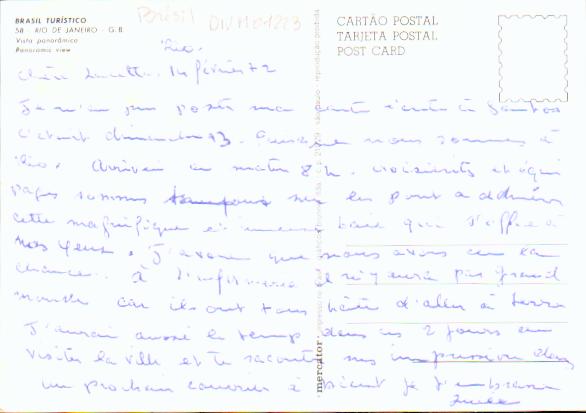 BRASIL TURÍSTICO
58 - RIO DE JANEIRO - G.B.
Vista panorâmica
Panoramic view
Brésil DIVM01223
CARTÃO POSTAL
TARJETA POSTAL
POST CARD
Rio.
Chère 14 février 72
Je n'ai pu poster ma carte écrite à Santos
c'était dimanche 13. nous sommes à
Rio. Arrivée ce matin 8 h. croisiéristes et équi
pages sommes sur les pont a admirer
cette magnifique et immense baie qui s'offre à
nos yeux. J'avoue que nous avons eu la
chance. à l'infirmerie il n'y aura pas grand
monde car ils ont tous hâte d'aller à terre
J'aurai aussi le temps dans ces 2 jours de
visiter la ville et te raconter mes impression dans
un prochain courrier à bientôt je t'embrasse
mercator
reprodução proibida